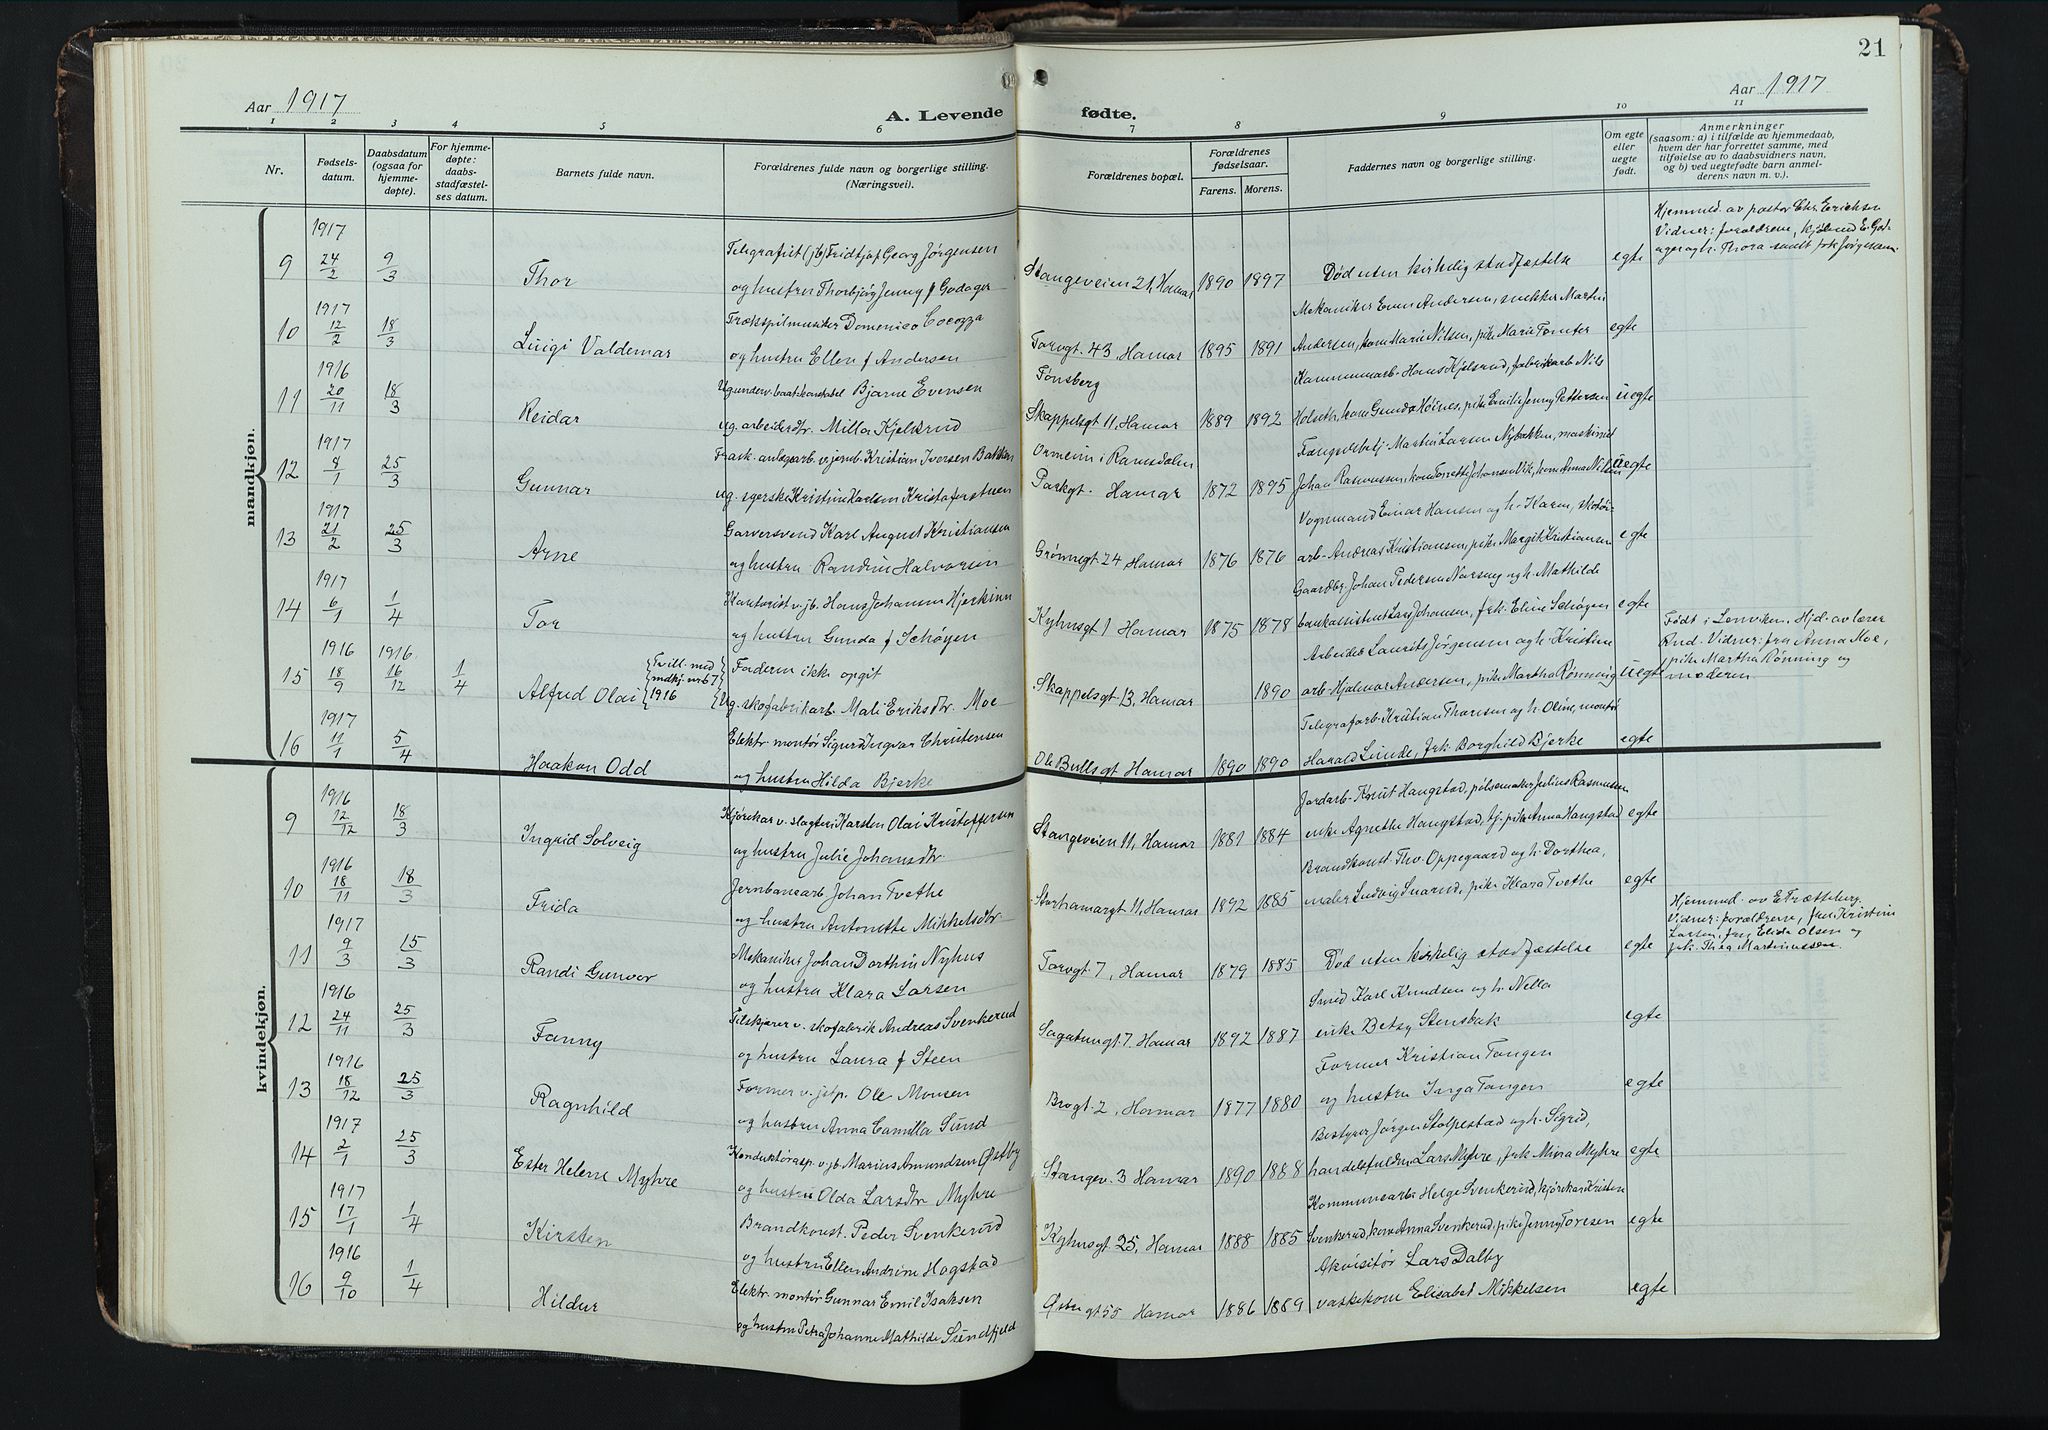 21
Aar 1917
A. Levende fødte.
Aar 1917
1 2 3 4 5 6 7 8 9 10 11
Nr.
Fødsels-
datum.
Daabsdatum
(ogsaa for
hjemme-
døpte).
For hjemme-
døpte:
daabs-
stadfæstel-
ses datum.
Barnets fulde navn.
Forældrenes fulde navn og borgerlige stilling.
(Næringsvei).
Forældrenes bopæl.
Forældrenes
fødselsaar.
Farens. Morens.
Faddernes navn og borgerlige stilling.
Om egte
eller
uegte
født.
Anmerkninger
(saasom: a) i tilfælde av hjemmedaab,
hvem der har forrettet samme, med
tilføielse av to daabsvidners navn,
og b) ved uegtefødte barn anmel-
derens navn m. v.).
mandkjøn.
1917
9 24/2 9/3 Thor
Telegrafist (jb) Fridtjof Georg Jørgensen
og hustru Thorbjørg Jenny f Godager
Stangeveien 21, Hamar 1890 1897
Død uten kirkelig stadfæstelse
egte
Hjemmed. av pastor Chr. Erichsen
Vidner: forældrene,
1917
10 12/2 18/3 Luigi Valdemar
Trækspilmusiker Domenico Cocozza
og hustru Ellen f Andersen
Torvgt. 43, Hamar 1895 1891
Mekaniker Even Andersen, snekker Martin
Andersen, kone Marie Nilsen, pike Marie Tomter
egte
1916
11 20/11 18/3 Reidar
Ug underv.baatskonstabel Bjarne Evensen
ug. arbeiderdtr. Milla Kjelsrud
Tønsberg
Skappelsgt 11, Hamar 1889 1892
Kommunearb. Hans Kjelsrud, fabrikarb Nils
Holseth, kone Gunda Høines, pike Emilie Jenny Pettersen
uegte
1917
12 8/1 25/3 Gunnar
Frask. anlægsarb. v. jernb. Kristian Iversen Bakken
ug. syerske Kristine Karlsen Kristoferstuen
Ormeim i Romsdalen
Parkgt. Hamar 1872 1895
Fængselsbetj. Martin Larsen Nybakken, maskinist
Johan Rasmussen, kone Torrette Johansen Vik, kone Anna Nilsen
uegte
1917
13 21/2 25/3 Arne
Garversvend Karl August Kristiansen
og hustru Randine Halvorsen
Grønnegt 24, Hamar 1876 1876
Vognmand Einar Hansen og h. Karen, skotøi-
arb. Andreas Kristiansen, pike Margit Kristiansen
egte
1917
14 6/1 1/4 Tor
Kontorist v. jb. Hans Johannes Hjerkinn
og hustru Gunda f Schøyen
Kyhnsgt 1 Hamar 1875 1878
Gaardbr. Johan Pedersen Narsmg og h. Mathilde
bankassistent Lars Johansen, frk. Eline Schøyen
egte
1916 1916
15 18/9 16/12 1/4 Alfred Olai
Tvill. med
mdkj. nr 67
1916
Faderen ikke opgit
Ug. skofabrikarb. Mali Eriksdtr. Moe
Skappelsgt 13, Hamar 1890
Arbeider Laurits Jørgensen og h. Kristine
arb. Hjalmar Andersen, pike Martha Rønning
uegte
Født i Lenviken. Hjd. av lærer
And. Vidner: fru Anna Moe,
pike Martha Rønning og
moderen
1917
16 11/1 5/4 Haakon Odd
Elektr. montør Sigurd Ingvar Christensen
og hustru Hilda Bjerke
Ole Bullsgt Hamar 1890 1890
Telegrafarb. Kristian Thoresen og h. Oline, montør
Harald Lunde, frk. Borghild Bjerke
egte
kvindekjøn.
1916
9 12/12 18/3 Ingrid Solveig
Kjørekar v. slagteri Karsten Olai Kristoffersen
og hustru Julie Johansdtr.
Stangeveien 11, Hamar 1881 1884
Jordarb. Knut Haugstad, pølsemaker Julius Rasmussen
enke Agnethe Haugstad, tj. pike Anna Haugstad
egte
1916
10 18/11 18/3 Frida
Jernbanearb Johan Tvethe
og hustru Antonette Mikkelsdtr
Storhamargt 11, Hamar 1892 1885
Brandkonst. Thv. Oppegaard og h. Dorthea,
maler Ludvig Snarud, pike Klara Tvethe
egte
1917
11 9/3 15/3 Randi Gunvor
Mekaniker Johan Dorthin Nyhus
og hustru Klara Larsen
Torvgt. 7, Hamar 1879 1885
Død uten kirkelig stadfæstelse
egte
Hjemmed. av E Trætteberg.
Vidner: forældrene, fru Kristine
Larsen, fru Elida Olsen og
frk. Thea Martinussen.
1916
12 24/11 25/3 Fanny
Tilskjærer v. skofabrik Andreas Svenkerud
og hustru Laura f Steen
Sagatungt 7, Hamar 1892 1887
Smed Karl Knudsen og h. Nella
enke Betsy Stensbak
egte
1916
13 18/12 25/3 Ragnhild
Former v. jstp. Ole Monsen
og hustru Anna Camilla Sund
Brogt. 2, Hamar 1877 1880
Former Kristian Tangen
og hustru Inga Tangen
egte
1917
14 2/1 25/3 Ester Helene Myhre
Konduktørasp. v. jb. Marius Amundsen Østby
og hustru Olda Larsdtr Myhre
Stangev. 3 Hamar 1890 1888
Bestyrer Jørgen Stolpestad og h. Sigrid,
handelsfuldm Lars Myhre, frk Mina Myhre
egte
1917
15 17/1 1/4 Kirsten
Brandkonst. Peder Svenkerud
og hustru Ellen Andrine Hagstad
Kyhnsgt 25, Hamar 1888 1885
Kommunearb. Helge Svenkerud, kjørekar Kristen
Svenkerud, kone Anna Svenkerud, pike Jenny Toresen
egte
1916
16 9/10 1/4 Hildur
Elektr. montør Gunnar Emil Isaksen
og hustru Petra Johanne Mathilde Sundfjeld
Østregt 55 Hamar 1886 1889
Akvisitør Lars Dalby
vaskekone Elisabet Mikkelsen
egte